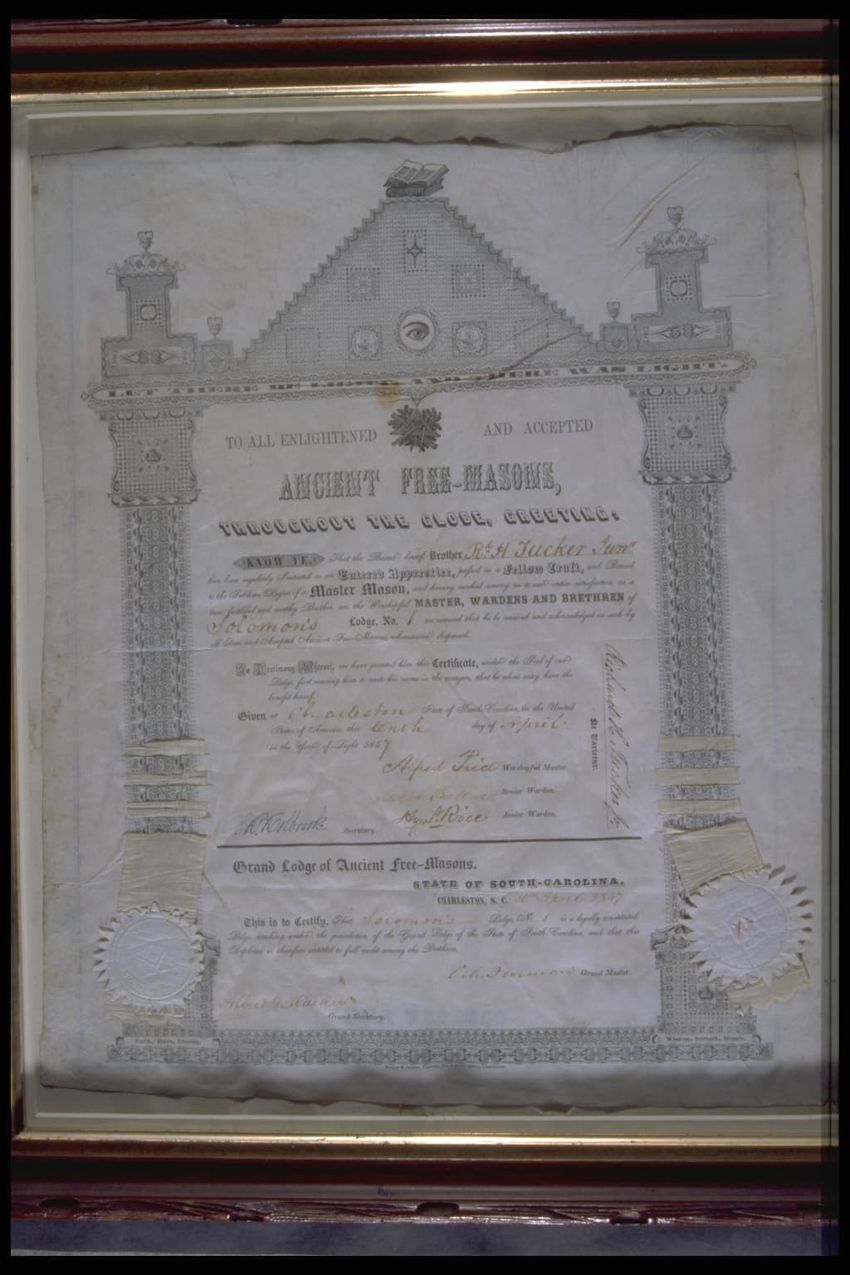 LET THERE BE LIGHT, AND THERE WAS LIGHT.
TO ALL ENLIGHTENED AND ACCEPTED
ANCIENT FREE-MASONS,
THROUGHOUT THE GLOBE, GREETING:
KNOW YE, That the Bearer hereof Brother Rd. H Tucker Junr
has been regularly Initiated as an Entered Apprentice, passed as a Fellow Craft, and Raised
to the Sublime Degree of a Master Mason, and having worked among us to our entire satisfaction, as a
true, faithful and worthy Brother, we the Worshipful MASTER, WARDENS AND BRETHREN of
Solomon's Lodge, No. 1 recommend that he be received and acknowledged as such by
all Free and Accepted Ancient Free-Masons wheresoever dispersed.
In Testimony Whereof, we have granted him this Certificate, under the Seal of our
Lodge, first causing him to write his name in the margin, that he alone may have the
benefit hereof.
Given at Charleston State of South Carolina, in the United
States of America this tenth day of April
in the Year of Light 5847
Ne Varietur.
Richard H. Tucker Jr.
Alfred Price Worshipful Master.
Senior Warden.
Hy. S. Rice Junior Warden.
Secretary.
Grand Lodge of Ancient Free-Masons.
STATE OF SOUTH-CAROLINA.
CHARLESTON, S. C. April 1847
This is to Certify, That Solomon's Lodge, No. 1 is a legally constituted
Lodge, working under the jurisdiction of the Grand Lodge of the State of South Carolina, and that this
Diploma is therefore entitled to full credit among the Brethren.
Grand Master.
Albert G. Mackey
Grand Secretary.
Faith, Hope, Charity.
Wisdom, Strength, Beauty.